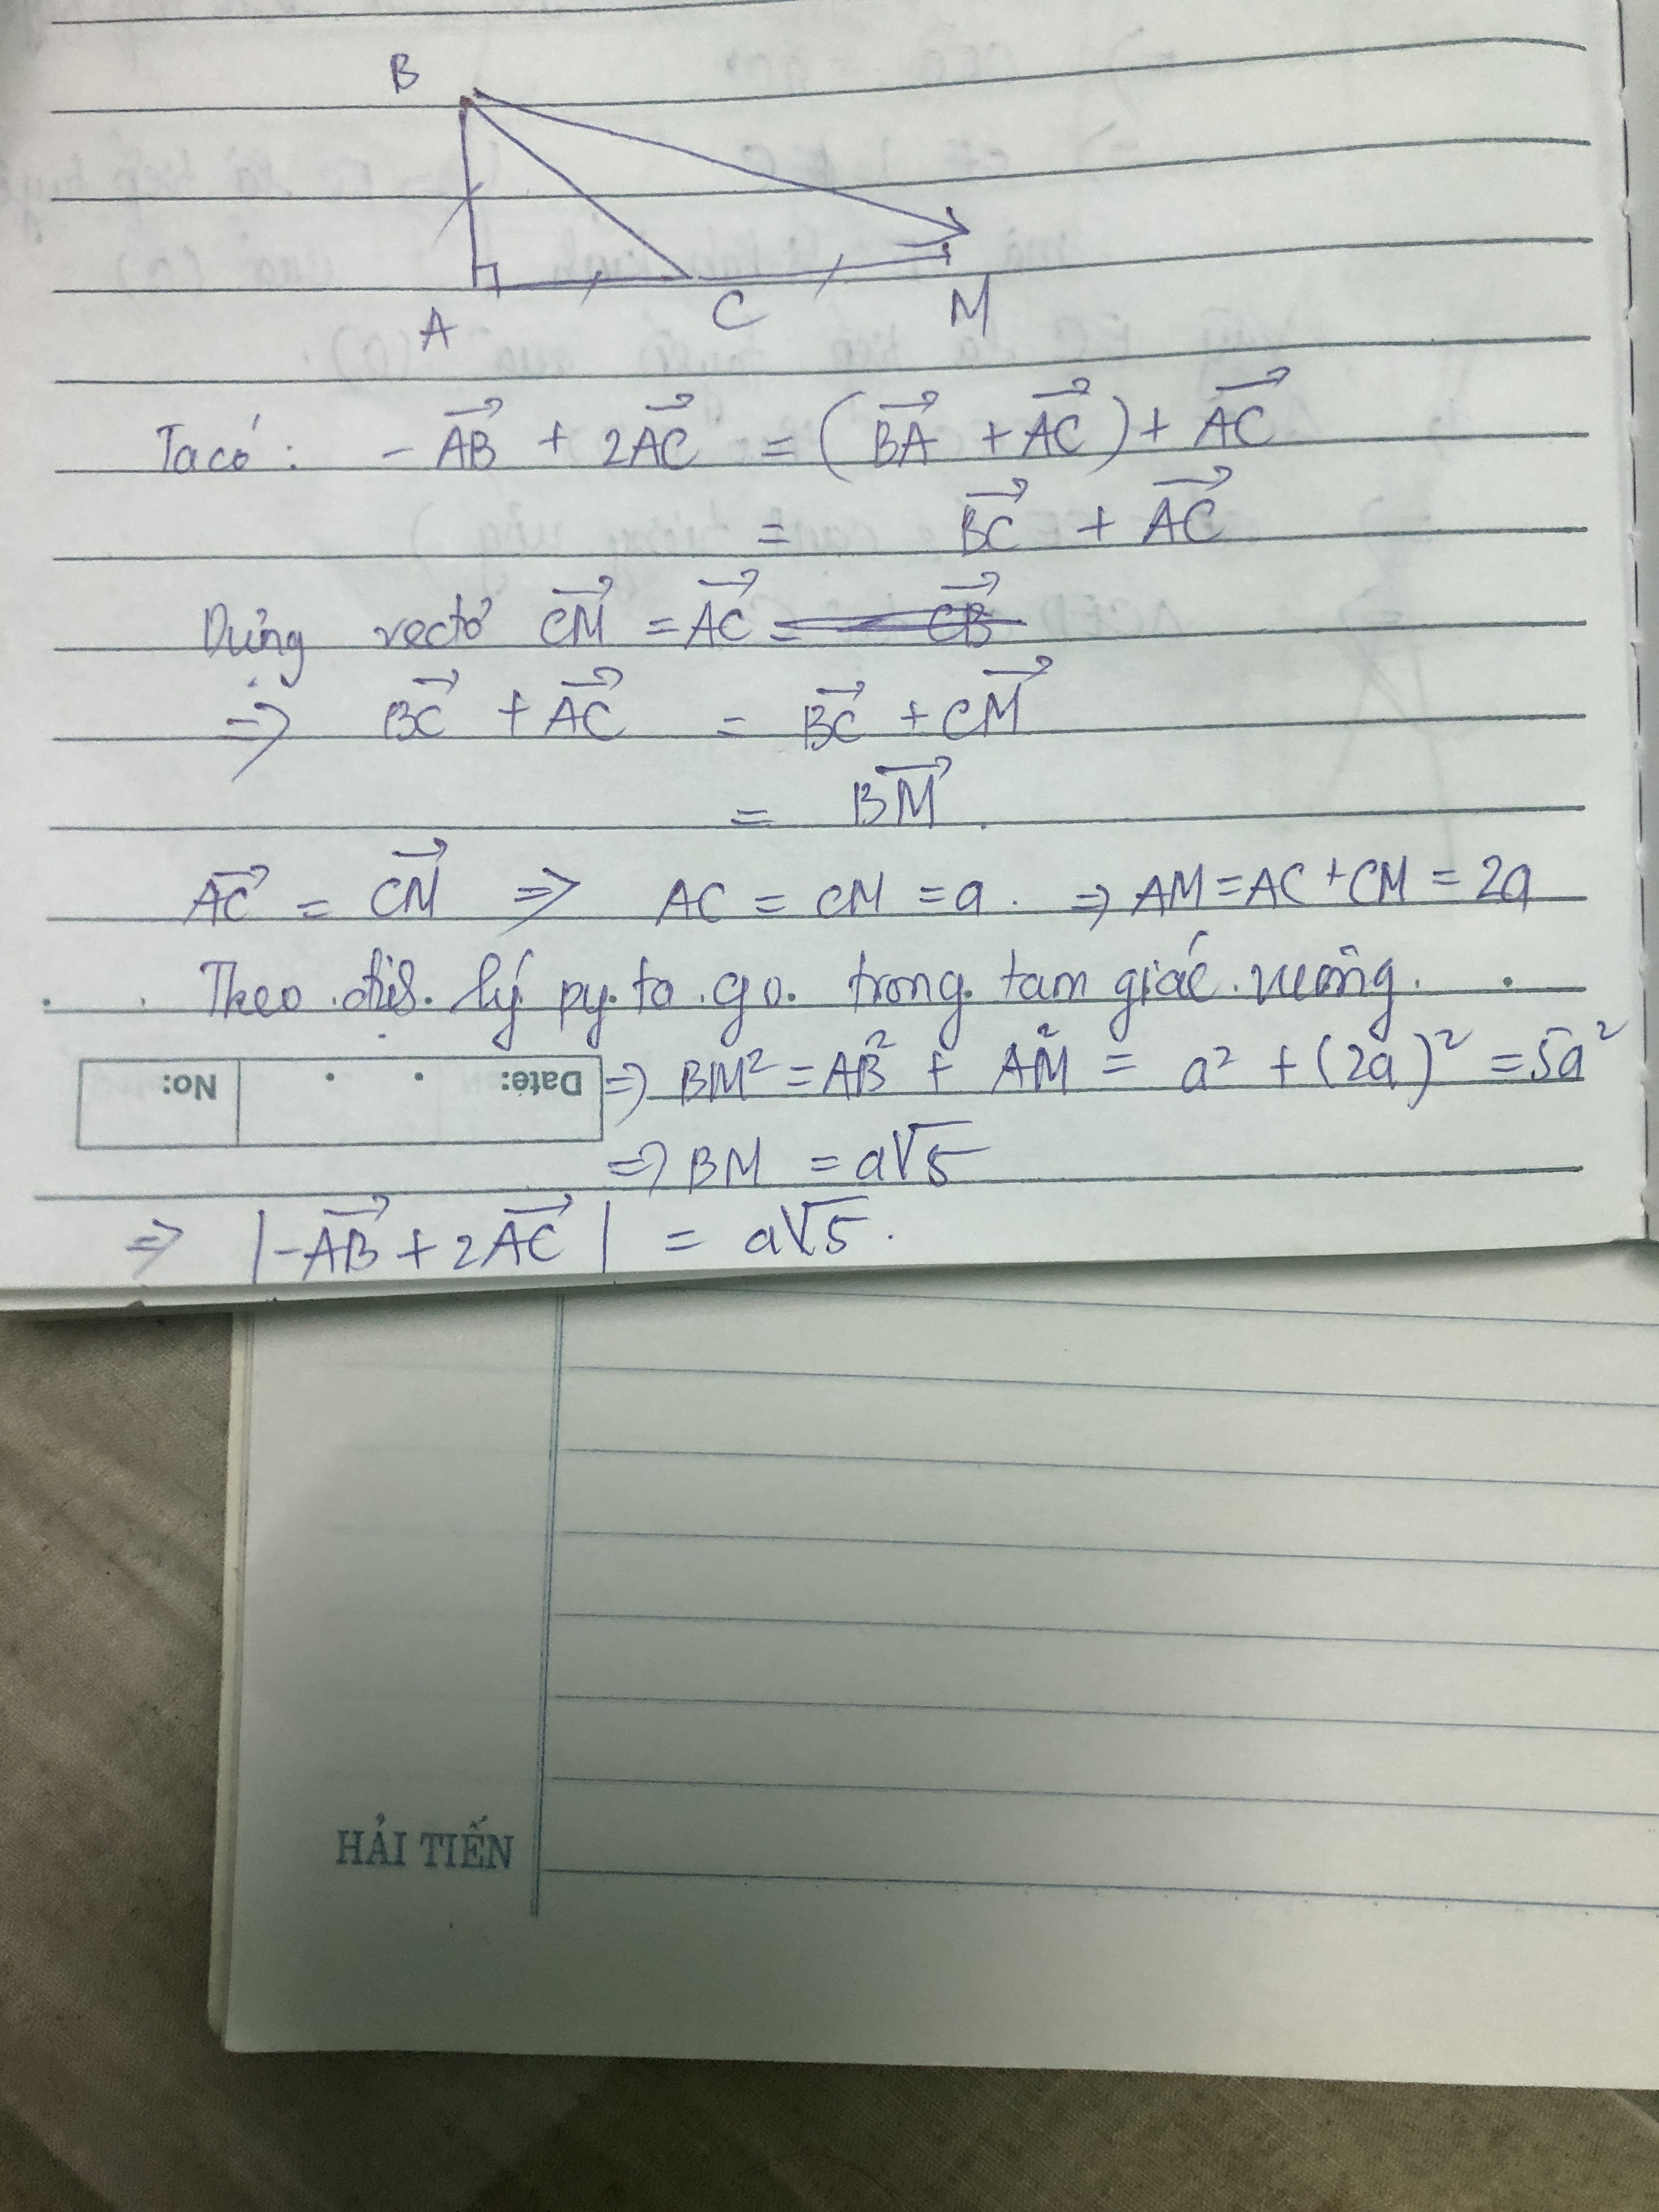 B
A C M
Ta có: -AB→ + 2AC→ = (BA→ + AC→) + AC→
= BC→ + AC→
Dựng vectơ CM→ = AC→ = CB→
=> BC→ + AC→ = BC→ + CM→
= BM→
AC→ = CM→ => AC = CM = a. => AM = AC + CM = 2a
Theo lý py ta go trong tam giác vuông.
=> BM² = AB² + AM² = a² + (2a)² = 5a²
No: Date:
=> BM = a√5
=> |-AB→ + 2AC→| = a√5.
HẢI TIẾN